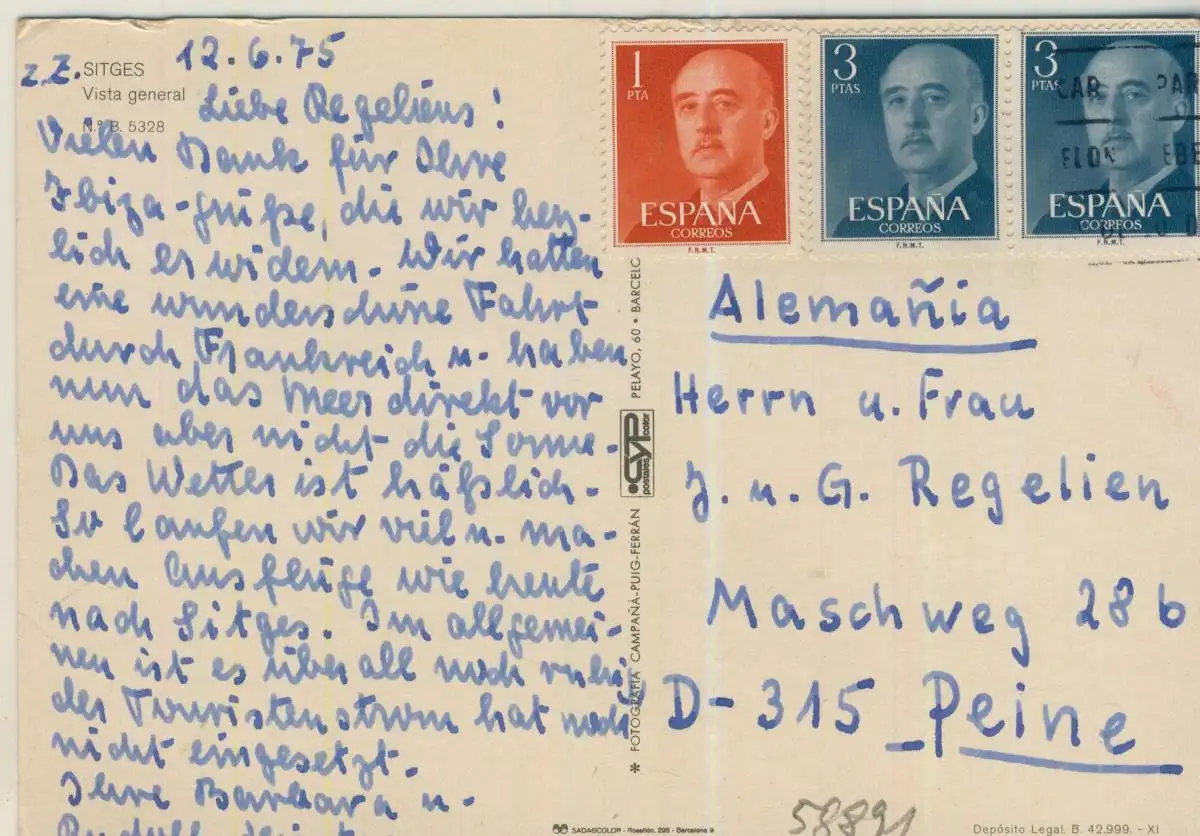 z.Z. SITGES 12.6.75
Vista general
N.° B. 5328
Liebe Regeliens!
Vielen Dank für Ihre
Ibiza-grüße, die wir herz-
lich erwidern. Wir hatten
eine wunderschöne Fahrt
durch Frankreich u. haben
nun das Meer direkt vor
uns aber nicht die Sonne.
Das Wetter ist häßlich.
So laufen wir viel u. ma-
chen Ausflüge wie heute
nach Sitges. Im allgemei-
nen ist es überall noch ruhig
der Touristenstrom hat noch
nicht eingesetzt.
Ihre Barbara u.
Rudolf
1
PTA
ESPAÑA
CORREOS
F.N.M.T.
3
PTAS
ESPAÑA
CORREOS
F.N.M.T.
3
PTAS
ESPAÑA
CORREOS
F.N.M.T.
PELAYO, 60 • BARCELO
CYP
postales color
* FOTOGRAFÍA CAMPAÑÁ-PUIG-FERRÁN
Alemañia
Herrn u. Frau
J. u. G. Regelien
Maschweg 28 b
D-315 Peine
58891
SADAGCOLOR - Rosellón, 298 - Barcelona 9
Depósito Legal. B. 42.999. - XI